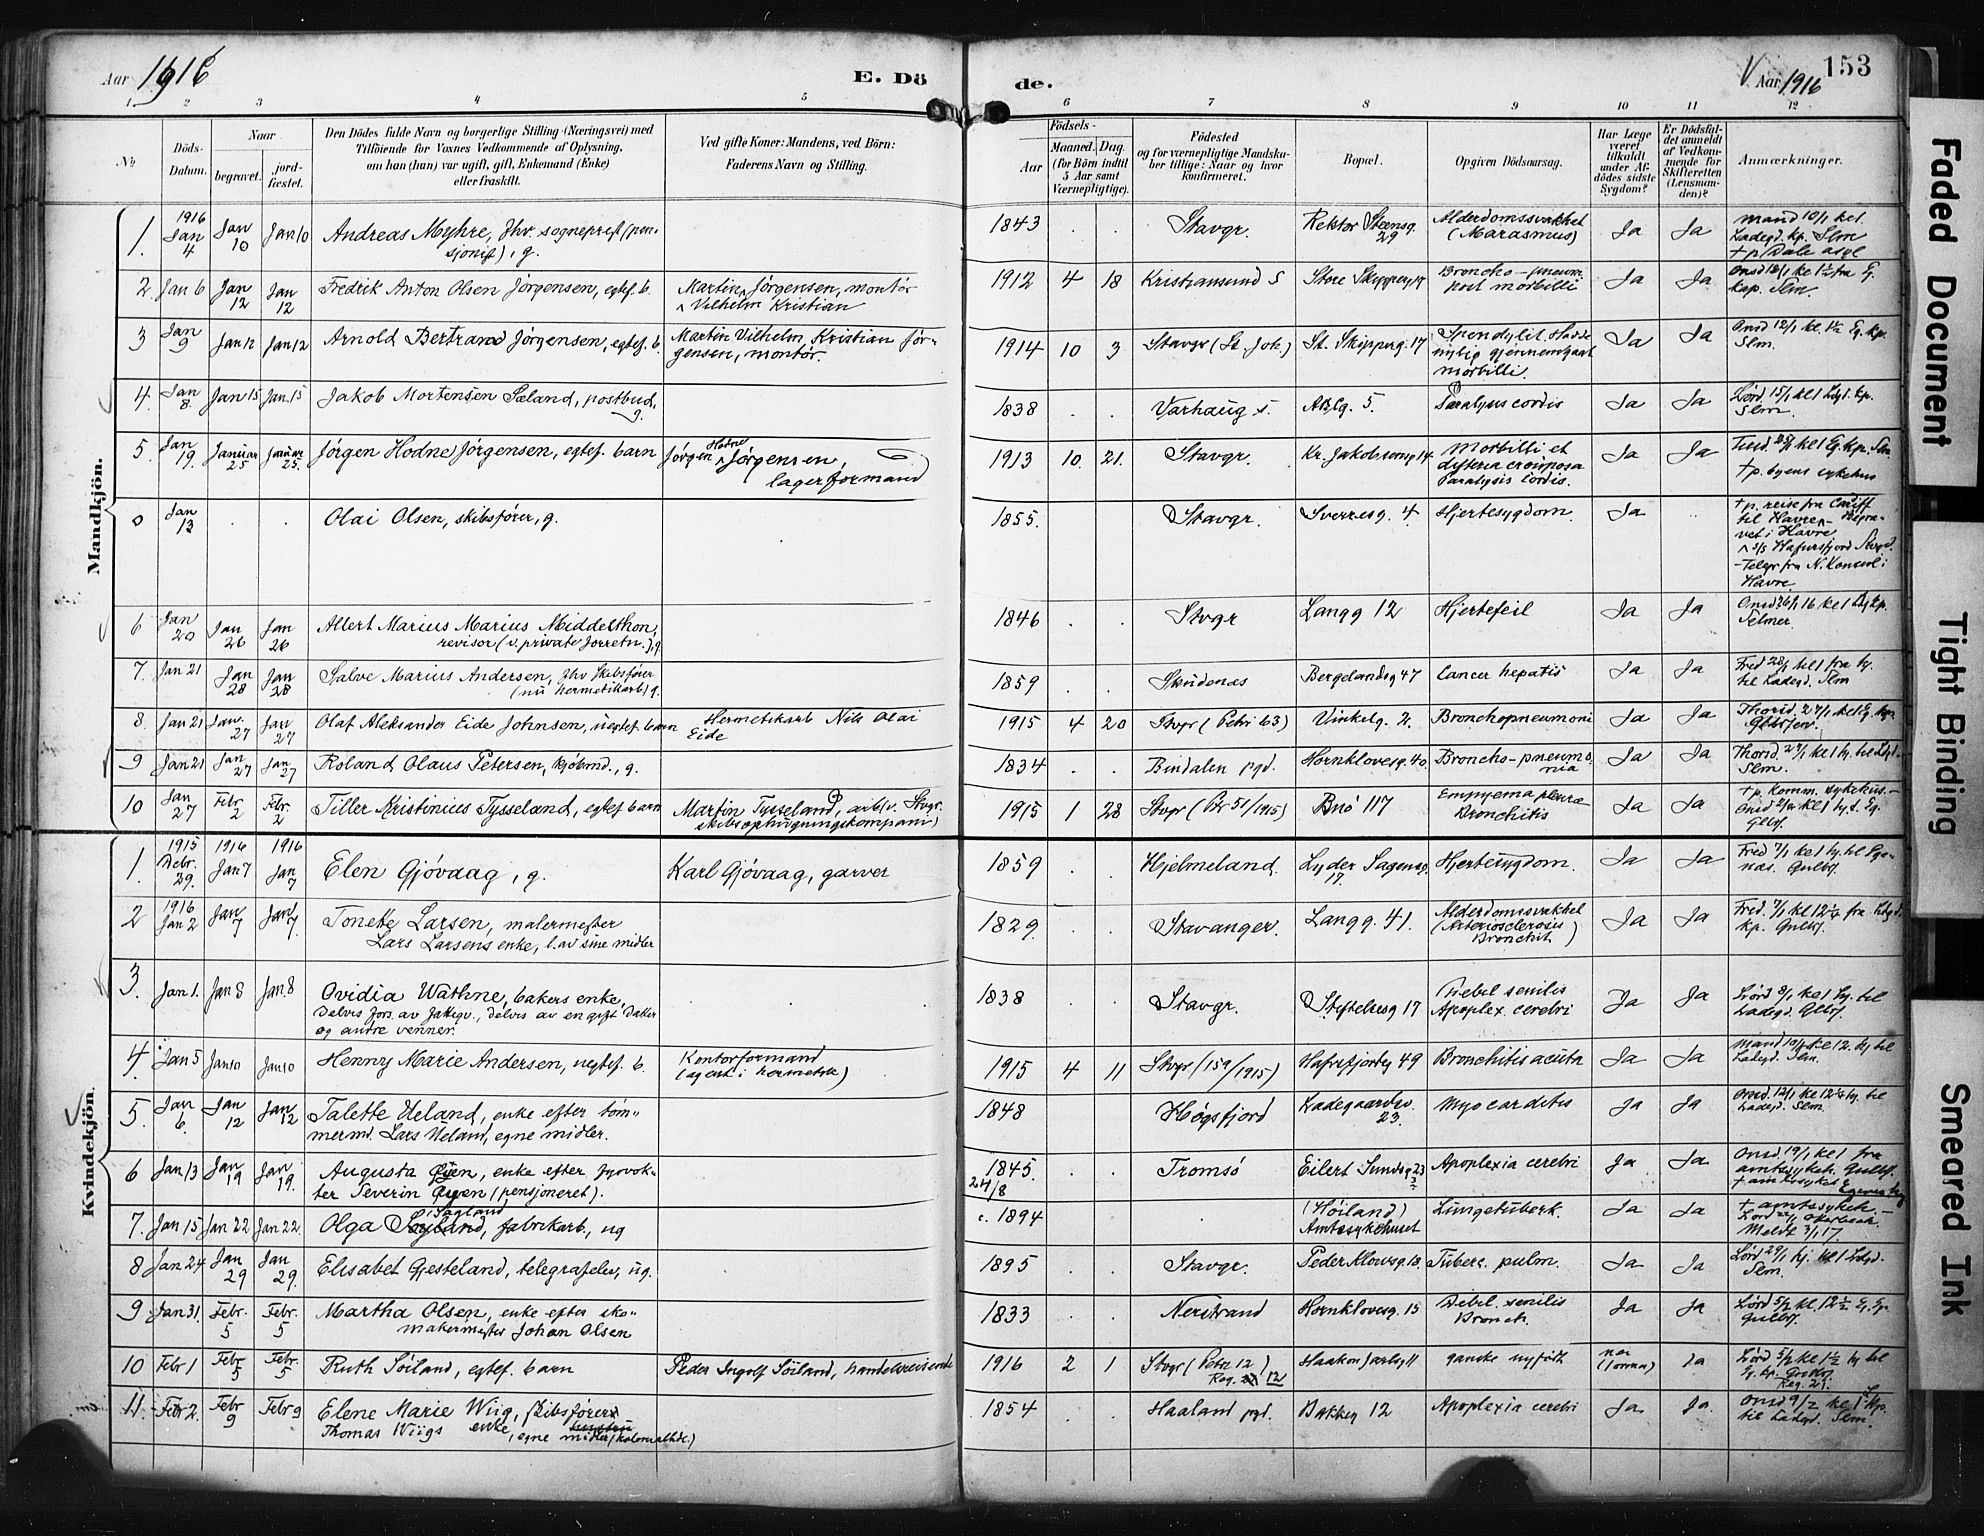 Aar 1916
E. Dö
de.
Aar 1916
153
1. 2 3 4 5 6 7 8 9 10 11 12
No.
Döds-Datum.
Naar
begravet.
jord-fæstet.
Den Dödes fulde Navn og borgerlige Stilling (Næringsvei) med
Tilföiende for Voxnes Vedkommende af Oplysning,
om han (hun) var ugift, gift, Enkemand (Enke)
eller fraskilt.
Ved gifte Koner: Mandens, ved Börn:
Faderens Navn og Stilling.
Födsels-
Aar
Maaned. Dag.
(for Börn indtil
5 Aar samt
Værnepligtige).
Födested
og for værnepligtige Mandskaber tillige: Naar og hvor
konfirmeret.
Bopæl.
Opgiven Dödsaarsag.
Har Læge
været
tilkaldt
under Afdödes sidste
Sygdom?
Er Dödsfaldet anmeldt
af Vedkommende for
Skifteretten
(Lensmanden)?
Anmærkninger.
Mandkjön.
1. 1916 Jan 4 Jan 10 Jan 10 Andreas Myhre, fhv. sogneprest (pensjonist), g. 1843 . . Stavgr. Rektor Steensg. 29 Alderdomssvakhet (Marasmus) Ja Ja Mand 10/1 kl 1. Ladegd. kp. Slm
2 Jan 6 Jan 12 Jan 12 Fredrik Anton Olsen Jörgensen, egtef. b. Martin Jörgensen, montör Vilhelm Kristian 1912 4 18 Kristiansund S Store Skipperg 17 Broncho-pneum. post morbilli Ja Ja
3 Jan 9 Jan 12 Jan 12 Arnold Bertrand Jörgensen, egtef. b. Martin Vilhelm Kristian Jörgensen, montör. 1914 10 3 Stavgr (St. Joh.) St. Skipperg. 17 Spondylit. Havde nylig gjennemgaat morbilli. Ja Ja Onsd 12/1 kl 1½ Eg. kp. Slm.
4. Jan 8. Jan 15 Jan. 15 Jakob Mortensen Sæland, postbud, g. 1838 . . Varhaug s. 5. Paralysis cordis Ja Ja Lørd. 15/1 kl 1 Ldgd. kp. Slm.
5. Jan 19. Januar 25 Januar 25. Jørgen Hodne Jørgensen, egtef. barn Jørgen Hodne Jørgensen, lagerformand 1913 10. 21. Stavgr. Kr. Jakobsensg 14 Morbilli et Paralysis cordis. Ja Ja † p. byens sykehus
0 Jan 13 . . Olai Olsen, skibsfører, g. 1855. Stavgr. Sverresg. 4 Hjertesygdom. Ja † p. reise fra Cardiff til Havre. Begravet i Havre Telegr fra N. Konsul i Havre
6 Jan 20 Jan 26 Jan 26 Allert Marius Marius Middelthon, revisor (v. private forretn.), g. 1846 . . Stvgr Langg 12 Hjertefeil Ja Ja Selmer.
7. Jan 21 Jan 28 Jan 28 Salve Marius Andersen, fhv Skibsfører (nu hermetikarb) g. 1859 . . Skudenes Bergelandsg 47 Cancer hepatis Ja Ja Fred 28/1 kl 1 fra hj. til Ladegd. Slm
8. Jan 21 Jan. 27 Jan 27 Olaf Aleksander Eide Johnsen, uegtef. barn Hermetikarb Nils Olai Eide 1915 4 20 Stvgr (Petri 63) Vinkelg. 4. Bronchopneumoni Ja Ja
9 Jan 21 Jan 27 Jan 27 Roland Olaus Petersen, kjøbmd., g. 1834 . . Bindalen pgd. Hornklovesg. 40 Broncho-pneumonia Ja Ja Thorsd. 27/1 kl 1 hj. til Ldgd. Slm.
10 Jan 27 Febr 2 Febr. 2 Martin Tysseland, arb. v. Stvgr. skibsophugningskompani) 1915 1 28 Stvgr (Ptr 51/1915) Buö 117 Empyema pleuræ Bronchitis Ja Ja † p. komm. sykehus.
Kvindekjön.
1. 1915 Decbr. 29. 1916 Jan 7 1916 Jan 7 Elen Gjövaag, g. Karl Gjövaag, garver 1859 . . Hjelmeland. Lyder Sagensg. 17. Hjertesygdom. Ja Ja Fred 7/1 kl 1 hj. til Eganes. Gulbr.
2 1916 Jan 2 Jan 7 Jan 7. Tonette Larsen, malermester Lars Larsens enke, l. av sine midler 1829. . . Stavanger. Langg. 41. Alderdomssvakhet (Arteriosclerosis Bronchit) Ja Ja Fred. 7/1 kl 12¼ fra Ldgd. kp. Gulbr.
3. Jan 1. Jan 8 Jan. 8 Ovidia Wathne, bakers enke, Delvis fors. av fattigv., delvis av en gift datter og andre venner. 1838 . . Stavgr. Stiftelsesg 17 Debil senilis Apoplex. cerebri Ja Ja Lørd 8/1 kl 1 hj. til Ladegd. Glbr.
4. Jan 5 Jan 10 Jan 10 Henny Marie Andersen, uegtef. b. Kontorformand (agent i hermetik) 1915 4 11 Stvgr (159/1915) Hafrsfjordsg 49 Bronchitis acuta Ja Ja Ladegd. Slm.
5. Jan 6. Jan 12 Jan 12 Talette Ueland, enke efter tømmermd. Lars Ueland, egne midler. 1848 . . Høgsfjord Ladegaardsv. 23. Myocarditis Ja Ja Onsd. 12/1 kl 12¼ hj. til Ladegd. Slm.
6 Jan 13 Jan 19 Jan 19. Augusta Øyen, enke efter fyrvokter Severin Øyen (pensjoneret). 1845 24/8 . . Tromsö Eilert Sundsg 23 Apoplexia cerebri Ja Ja Onsd. 19/1 kl 1 fra amtssykeh. Gulbr. † amtssykeh
7. Jan 15 Jan 22 Jan 22. Olga Søyland, fabrikarb., ug Søgland c. 1894 (Höiland) Amtssykehuset Lungetuberk. Ja Ja † amtssykeh.
8 Jan 24 Jan 29 Jan 29. Elisabet Gjesteland, telegrafelev, ug. 1895 . . Stavgr. Peder Klowsg. 13. Tuberc. pulm. Ja Ja Lørd 29/1 hj. kl 1 Ldgd. Slm.
9 Jan 31. Febr. 5 Febr. 5 Martha Olsen, enke efter skomakermester Johan Olsen 1833 . . Nerstrand Hornklovesg. 15 Debil. senilis Bronch. Ja Ja Lørd 5/2 kl. 12½ Eg. kp. Gulbr.
10 Febr 1 Febr. 5 Febr. 5 Ruth Söiland, egtef. barn Peder Ingolf Söiland, handelsreisende 1916 2 1 Stvgr (Petri 12) Reg. 12 Haakon Jarlsg 11 ganske nyfödt nei (Jorma) Ja Reg. 21.
11. Febr 2. Febr 9 Febr 9 Elene Marie Wiig, skibsførers Thomas Wiigs enke, egne midler (kolonialhdl.) 1854 . . Haaland pgd. Bakkeg 12 Apoplexia cerebri Ja Ja. Onsd 9/2 kl 1 til Ladegd. Slm.
Faded Document
Tight Binding
Smeared Ink